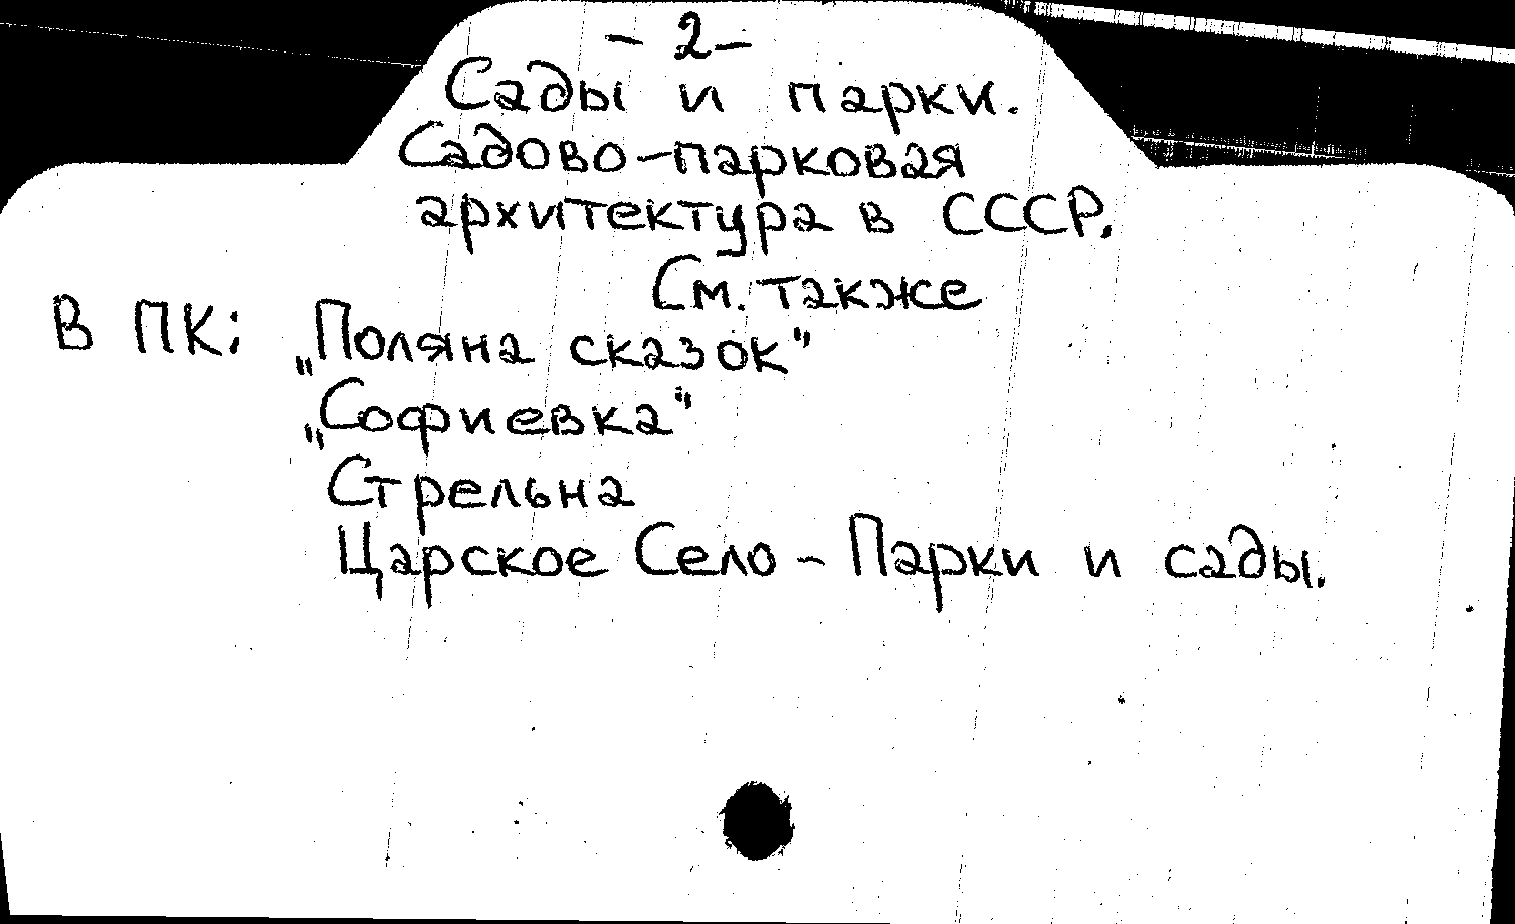 - 2 -
Сады и парки.
Садово-парковая
архитектура в СССР.
См. также
В ПК: „Поляна сказок"
„Софиевка"
Стрельна
Царское Село - Парки и сады.